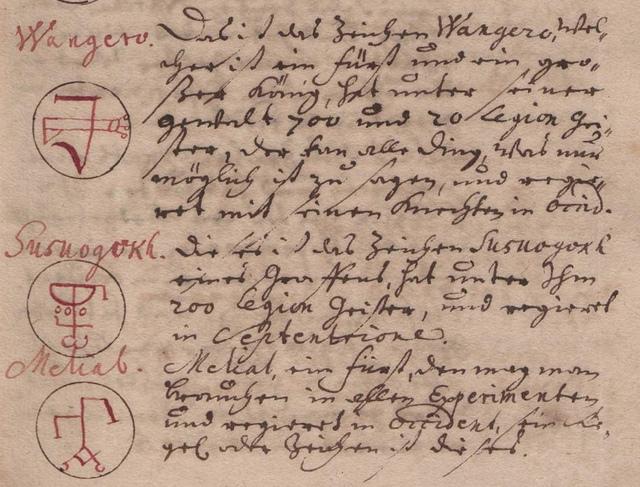 Wangero. Das ist das Zeichen Wangero, wel-
cher ist ein fürst und ein gro-
ßer König, hat unter seiner
gewalt 700 und 20 Legion Gei-
ster, der kan alle ding, was nur
möglich ist zu sagen, und regie-
ret mit seinen Knechten in Occid.
Susuogokh. Dieses ist das Zeichen Susuogokh
eines Graffens, hat unter Ihm
200 Legion Geister, und regieret
in Septentrione.
Meliat. Meliat, ein fürst, den mag man
brauchen in allen Experimenten
und regieret in Occident, sein Si-
gel oder Zeichen ist dieses.